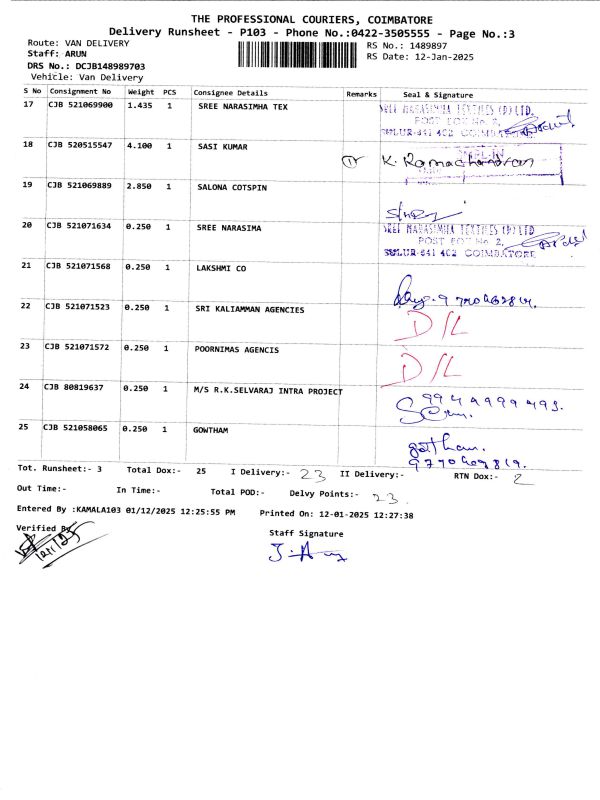 THE PROFESSIONAL COURIERS, COIMBATORE
Delivery Runsheet - P103 - Phone No.:0422-3505555 - Page No.:3
Route: VAN DELIVERY RS No.: 1489897
Staff: ARUN RS Date: 12-Jan-2025
DRS No.: DCJB148989703
Vehicle: Van Delivery
S No Consignment No Weight PCS Consignee Details Remarks Seal & Signature
17 CJB 521069900 1.435 1 SREE NARASIMHA TEX SREE NARASIMHA TEXTILES (P) LTD.
POST BOX No. 2,
SULUR-641 402 COIMBATORE
18 CJB 520515547 4.100 1 SASI KUMAR K. Ramachandran
19 CJB 521069889 2.850 1 SALONA COTSPIN
20 CJB 521071634 0.250 1 SREE NARASIMA SREE NARASIMHA TEXTILES (P) LTD
POST BOX No. 2,
SULUR-641 402 COIMBATORE
21 CJB 521071568 0.250 1 LAKSHMI CO
22 CJB 521071523 0.250 1 SRI KALIAMMAN AGENCIES D/L
23 CJB 521071572 0.250 1 POORNIMAS AGENCIS D/L
24 CJB 80819637 0.250 1 M/S R.K.SELVARAJ INTRA PROJECT
25 CJB 521058065 0.250 1 GOWTHAM
Tot. Runsheet:- 3 Total Dox:- 25 I Delivery:- 23 II Delivery:- RTN Dox:- 2
Out Time:- In Time:- Total POD:- Delvy Points:- 23
Entered By :KAMALA103 01/12/2025 12:25:55 PM Printed On: 12-01-2025 12:27:38
Verified By Staff Signature